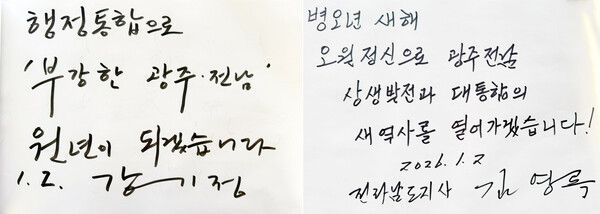 행정통합으로
'부강한 광주·전남'
원년이 되겠습니다
1.2. 강기정
병오년 새해
오월정신으로 광주전남
상생발전과 대통합의
새역사를 열어가겠습니다!
2026.1.2
전라남도지사 김영록